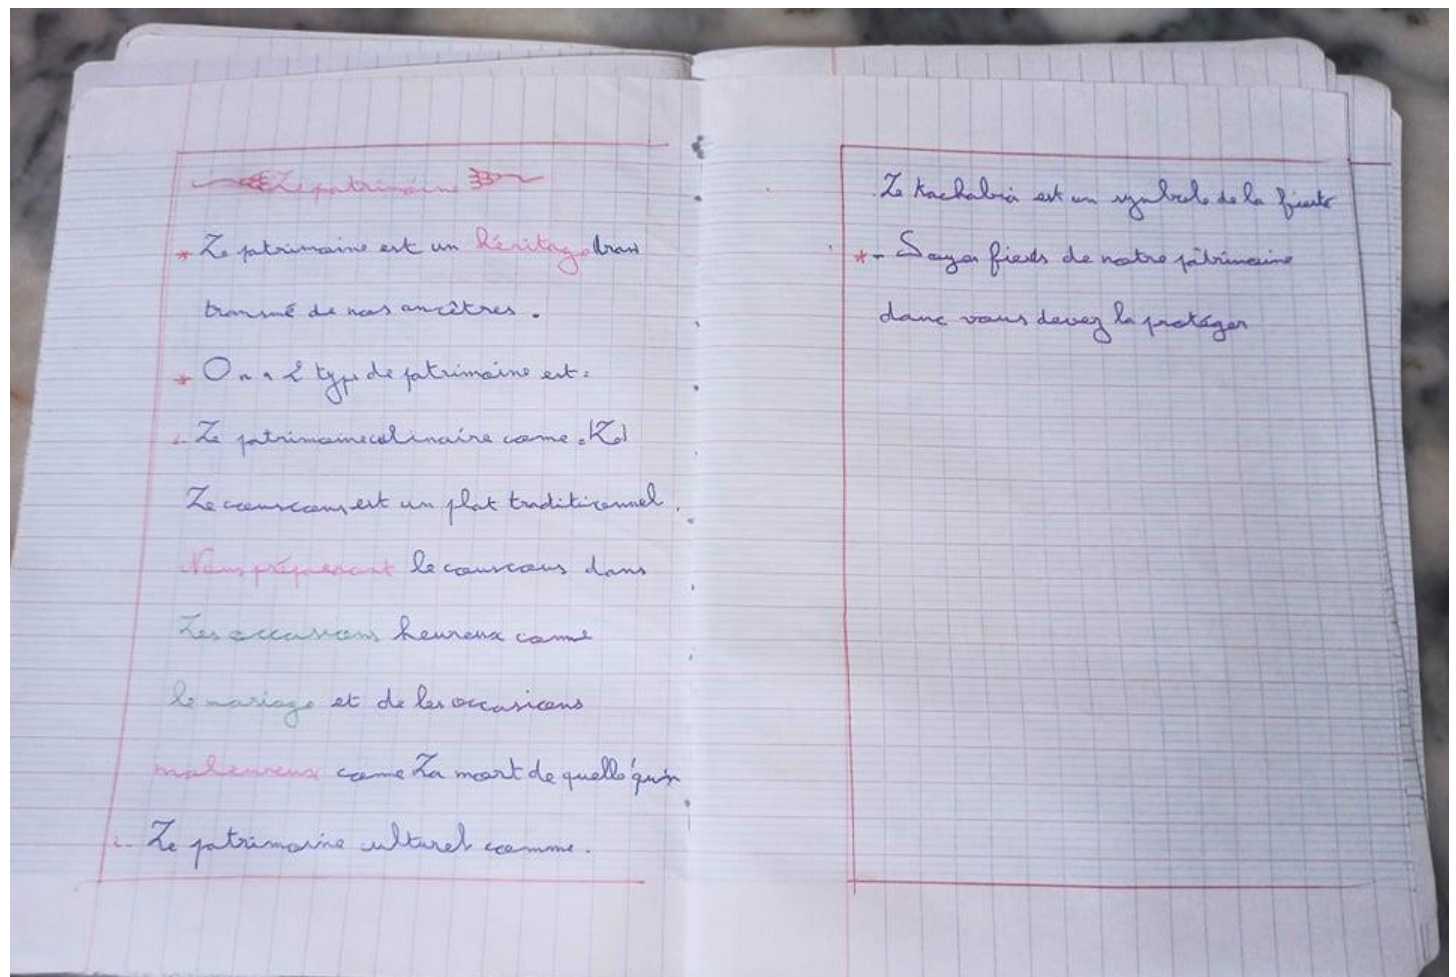 Le patrimoine
* Le patrimoine est un héritage tran
transmé de nos ancêtres.
* On a 2 type de patrimoine est:
Le patrimoine culinaire come:
Le couscous est un plat traditionnel.
Nous préparont le couscous dans
Les occasions heureux come
le mariage et de les occasions
malheureux come La mort de quelle'qu'n
2- Le patrimoine culturel comme.
Le kachabia est un symbole de la fierté
* - Soyer fiers de notre pâtrimoine
danc vous devez la protéger